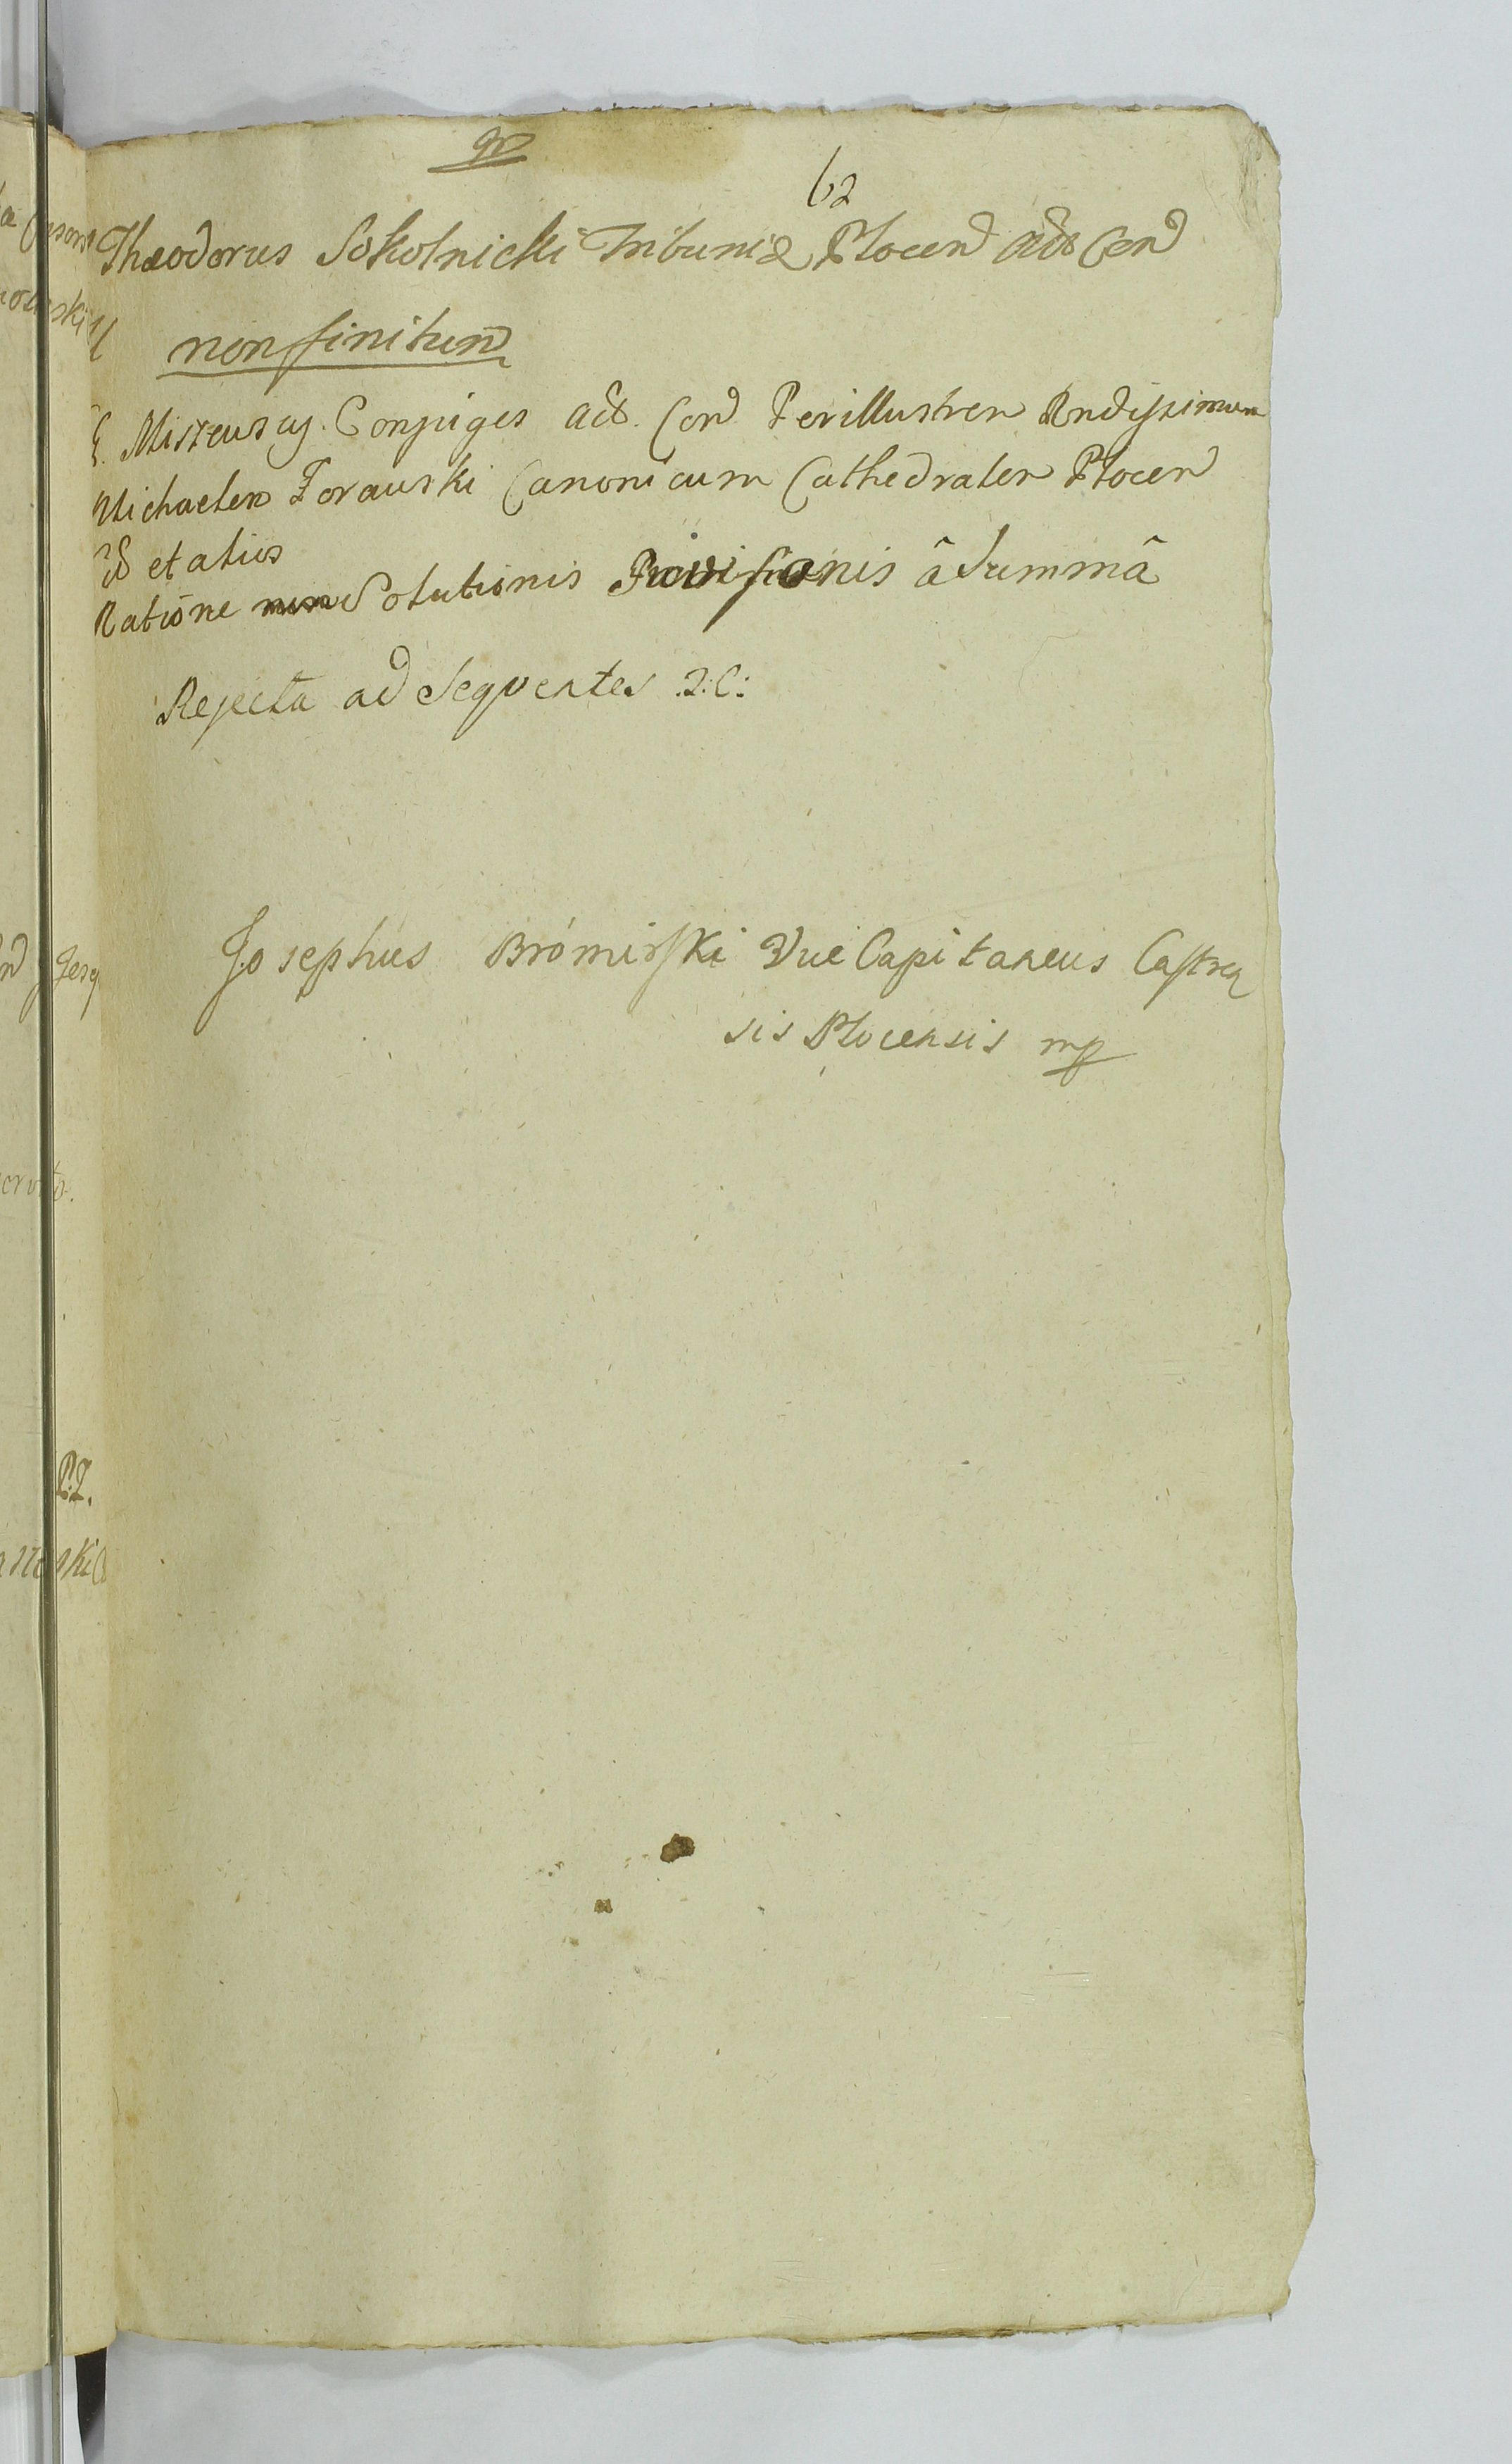 62
Theodorus Sokolnicki Tribunid Plocen Act Con
non finitum
G. Miszewscy Conjuges Act. Con Perillustrem Rndissimum
Michaelem Zorawski Canonicum Cathedralem Plocen
et alios
Ratione Solutionis Provisionis â Summâ
Rejecta ad Sequentes 2:C:
Josephus Bromirski Vice Capitaneus Castren
sis Plocensis mp